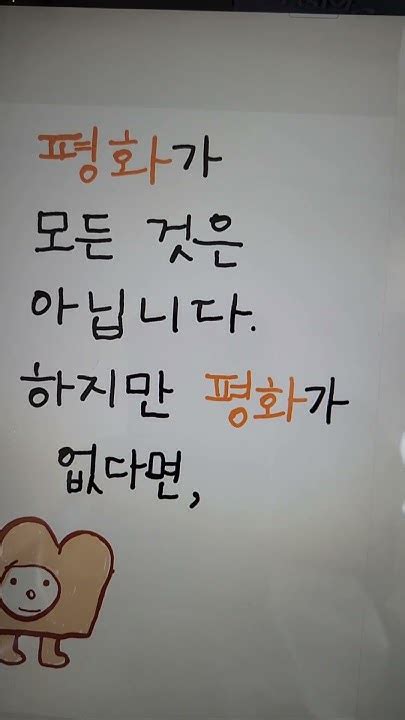 평화가
모든 것은
아닙니다.
하지만 평화가
없다면,